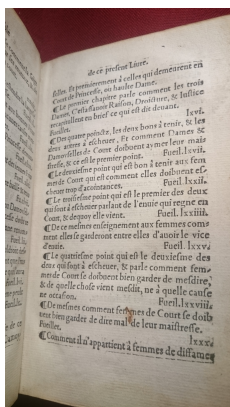 de ce present Livre.
selles. Et premierement à celles qui demeurent en
Court de Princesse, ou haulte Dame.
¶Le premier chapitre parle comment les trois
Dames, C'est assavoir Raison, Droiture, & Justice
recapitellent en brief ce qui est dit devant.
Fueillet. lxvi.
¶Des quatre poinctz, les deux bons à tenir, & les
deux aútres à escheuer, Et comment Dames &
Damoyselles de Court doibuent aymer leur mais
tresse, & ce est le premier point. Fueil.lxvii.
¶Le deuxiesme point qui est bon à tenir aux fem
mes de Court qui est comment elles doibuent es
cheuer trop d'acointances. Fueil.lxxii.
¶Le troisiesme point qui est le premier des deux
qui sont à escheuer parlant de l'enuie qui regne en
Court, & dequoy elle vient. Fueil.lxxiiii.
¶De ce mesmes enseignement aux femmes coms
ment elles se garderont entre elles d'auoir le vice
d'enuie. Fueil.lxxv.
¶Le quatriesme point qui est le deuxiesme des
deux qui sont à escheuer, & parle comment fem
mes de Court se doiuent bien garder de mesdire,
& de quelle chose vient mesdit, ne à quelle cause
ne occasion. Fueil.lxxviii.
¶De mesmes comment femmes de Court se doib
uent bien garder de dire mal de leur maistresse.
Fueillet. lxxx.
¶Comment il n'appartient à femmes de diffamer